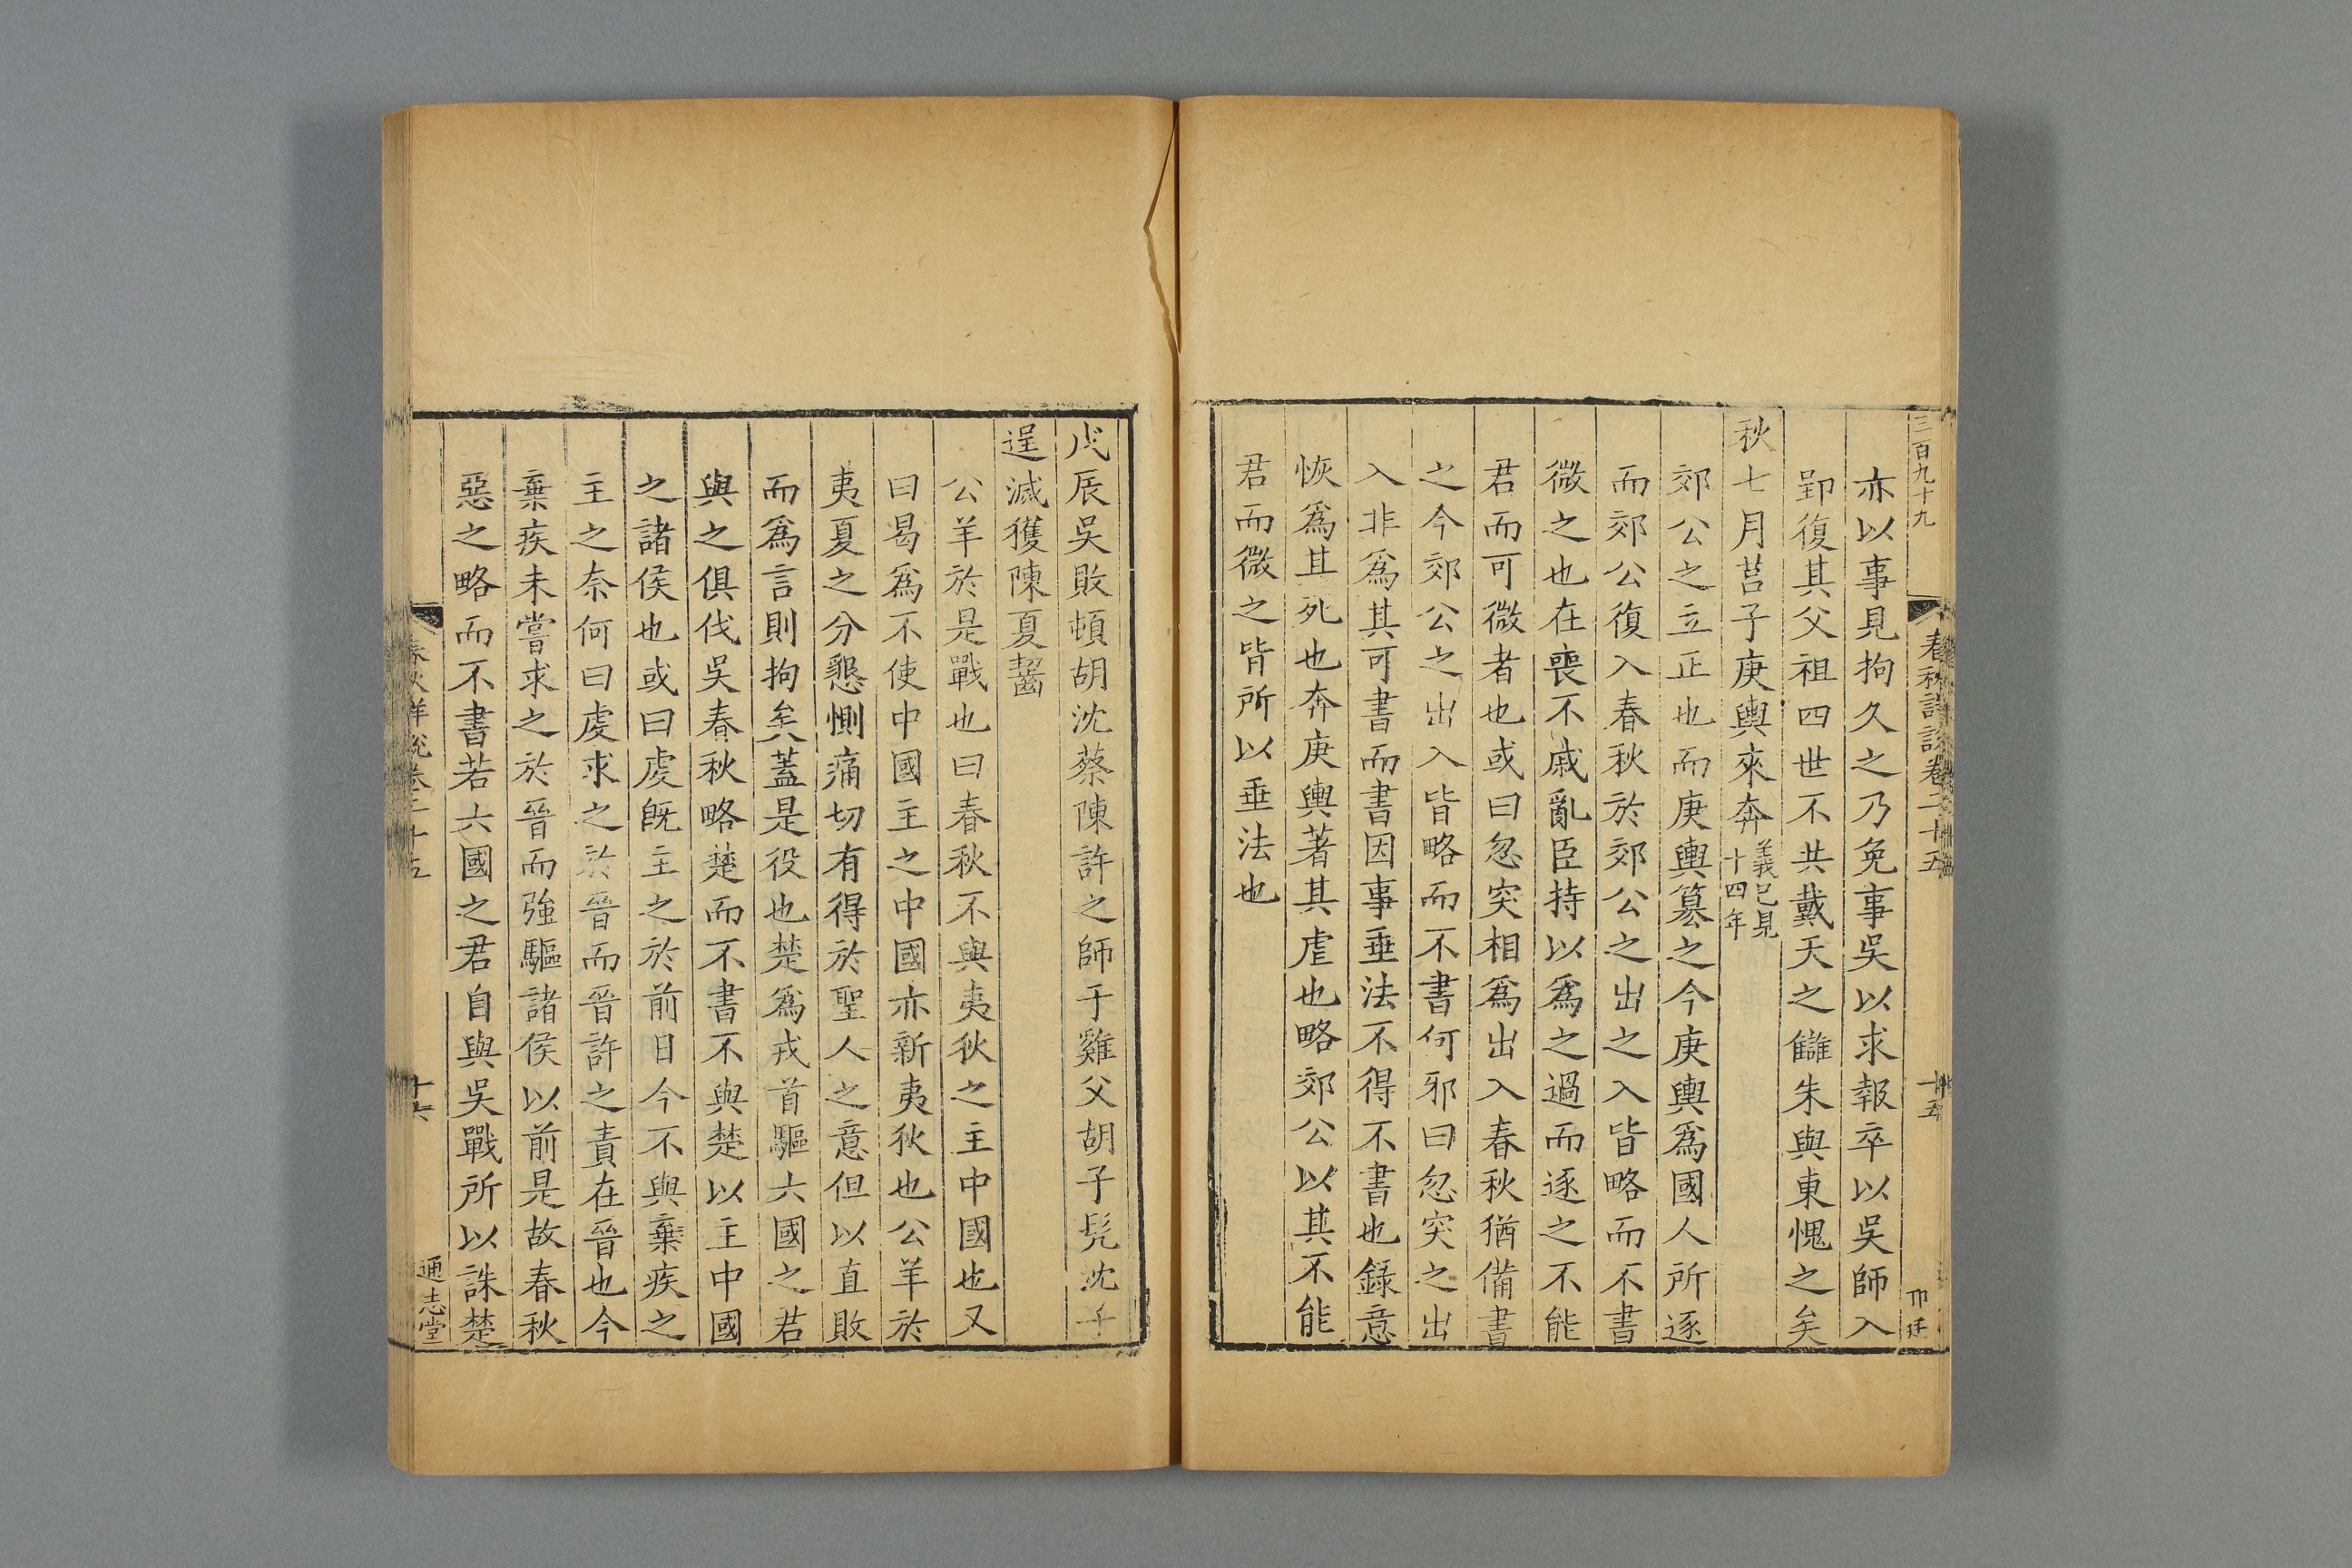 三百九十九
春秋詳說卷二十五
十五
亦以事見拘久之乃免事吳以求報卒以吳師入
郢復其父祖四世不共戴天之讎朱與東愧之矣
秋七月莒子庚輿來奔義已見十四年
郊公之立正也而庚輿簒之今庚輿爲國人所逐
而郊公復入春秋於郊公之出之入皆略而不書
微之也在喪不戚亂臣持以爲之過而逐之不能
君而可微者也或曰忽突相爲出入春秋猶備書
之今郊公之出入皆略而不書何邪曰忽突之出
入非爲其可書而書因事垂法不得不書也録意
恢爲其死也奔庚輿著其虐也略郊公以其不能
君而微之皆所以垂法也
戊辰吳敗頓胡沈蔡陳許之師于雞父胡子髠沈子
逞滅獲陳夏齧
公羊於是戰也曰春秋不與夷狄之主中國也又
曰曷爲不使中國主之中國亦新夷狄也公羊於
夷夏之分懇惻痛切有得於聖人之意但以直敗
而爲言則拘矣蓋是役也楚爲戎首驅六國之君
與之俱伐吳春秋略楚而不書不與楚以主中國
之諸侯也或曰虔旣主之於前日今不與棄疾之
主之奈何曰虔求之於晉而晉許之責在晉也今
棄疾未嘗求之於晉而強驅諸侯以前是故春秋
惡之略而不書若六國之君自與吳戰所以誅楚
春秋詳說卷二十五
十六
通志堂